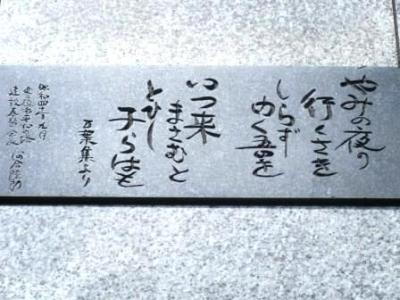 やみの夜の
行くさき
しらず
ゆく吾を
いつ来
まさむと
とひし
子らはも
万葉集より